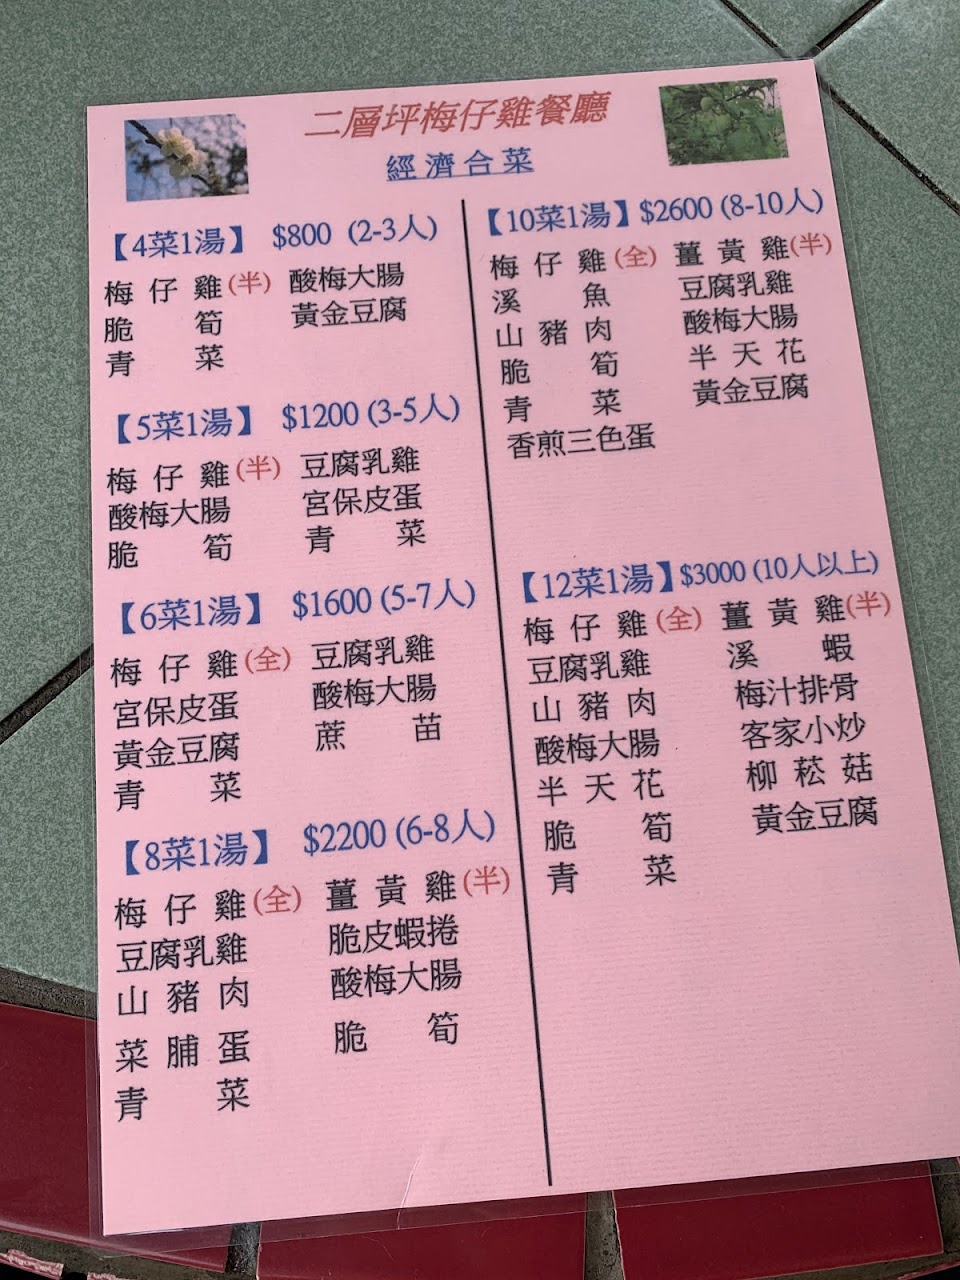 二層坪梅仔雞餐廳
經濟合菜
【4菜1湯】 $800 (2-3人)
梅仔雞(半) 酸梅大腸
脆筍 黃金豆腐
青菜
【5菜1湯】 $1200 (3-5人)
梅仔雞(半) 豆腐乳雞
酸梅大腸 宮保皮蛋
脆筍 青菜
【6菜1湯】 $1600 (5-7人)
梅仔雞(全) 豆腐乳雞
宮保皮蛋 酸梅大腸
黃金豆腐 蔗苗
青菜
【8菜1湯】 $2200 (6-8人)
梅仔雞(全) 薑黃雞(半)
豆腐乳雞 脆皮蝦捲
山豬肉 酸梅大腸
菜脯蛋 脆筍
青菜
【10菜1湯】$2600 (8-10人)
梅仔雞(全) 薑黃雞(半)
溪魚 豆腐乳雞
山豬肉 酸梅大腸
脆筍 半天花
青菜 黃金豆腐
香煎三色蛋
【12菜1湯】$3000 (10人以上)
梅仔雞(全) 薑黃雞(半)
豆腐乳雞 溪蝦
山豬肉 梅汁排骨
酸梅大腸 客家小炒
半天花 柳菘菇
脆筍 黃金豆腐
青菜